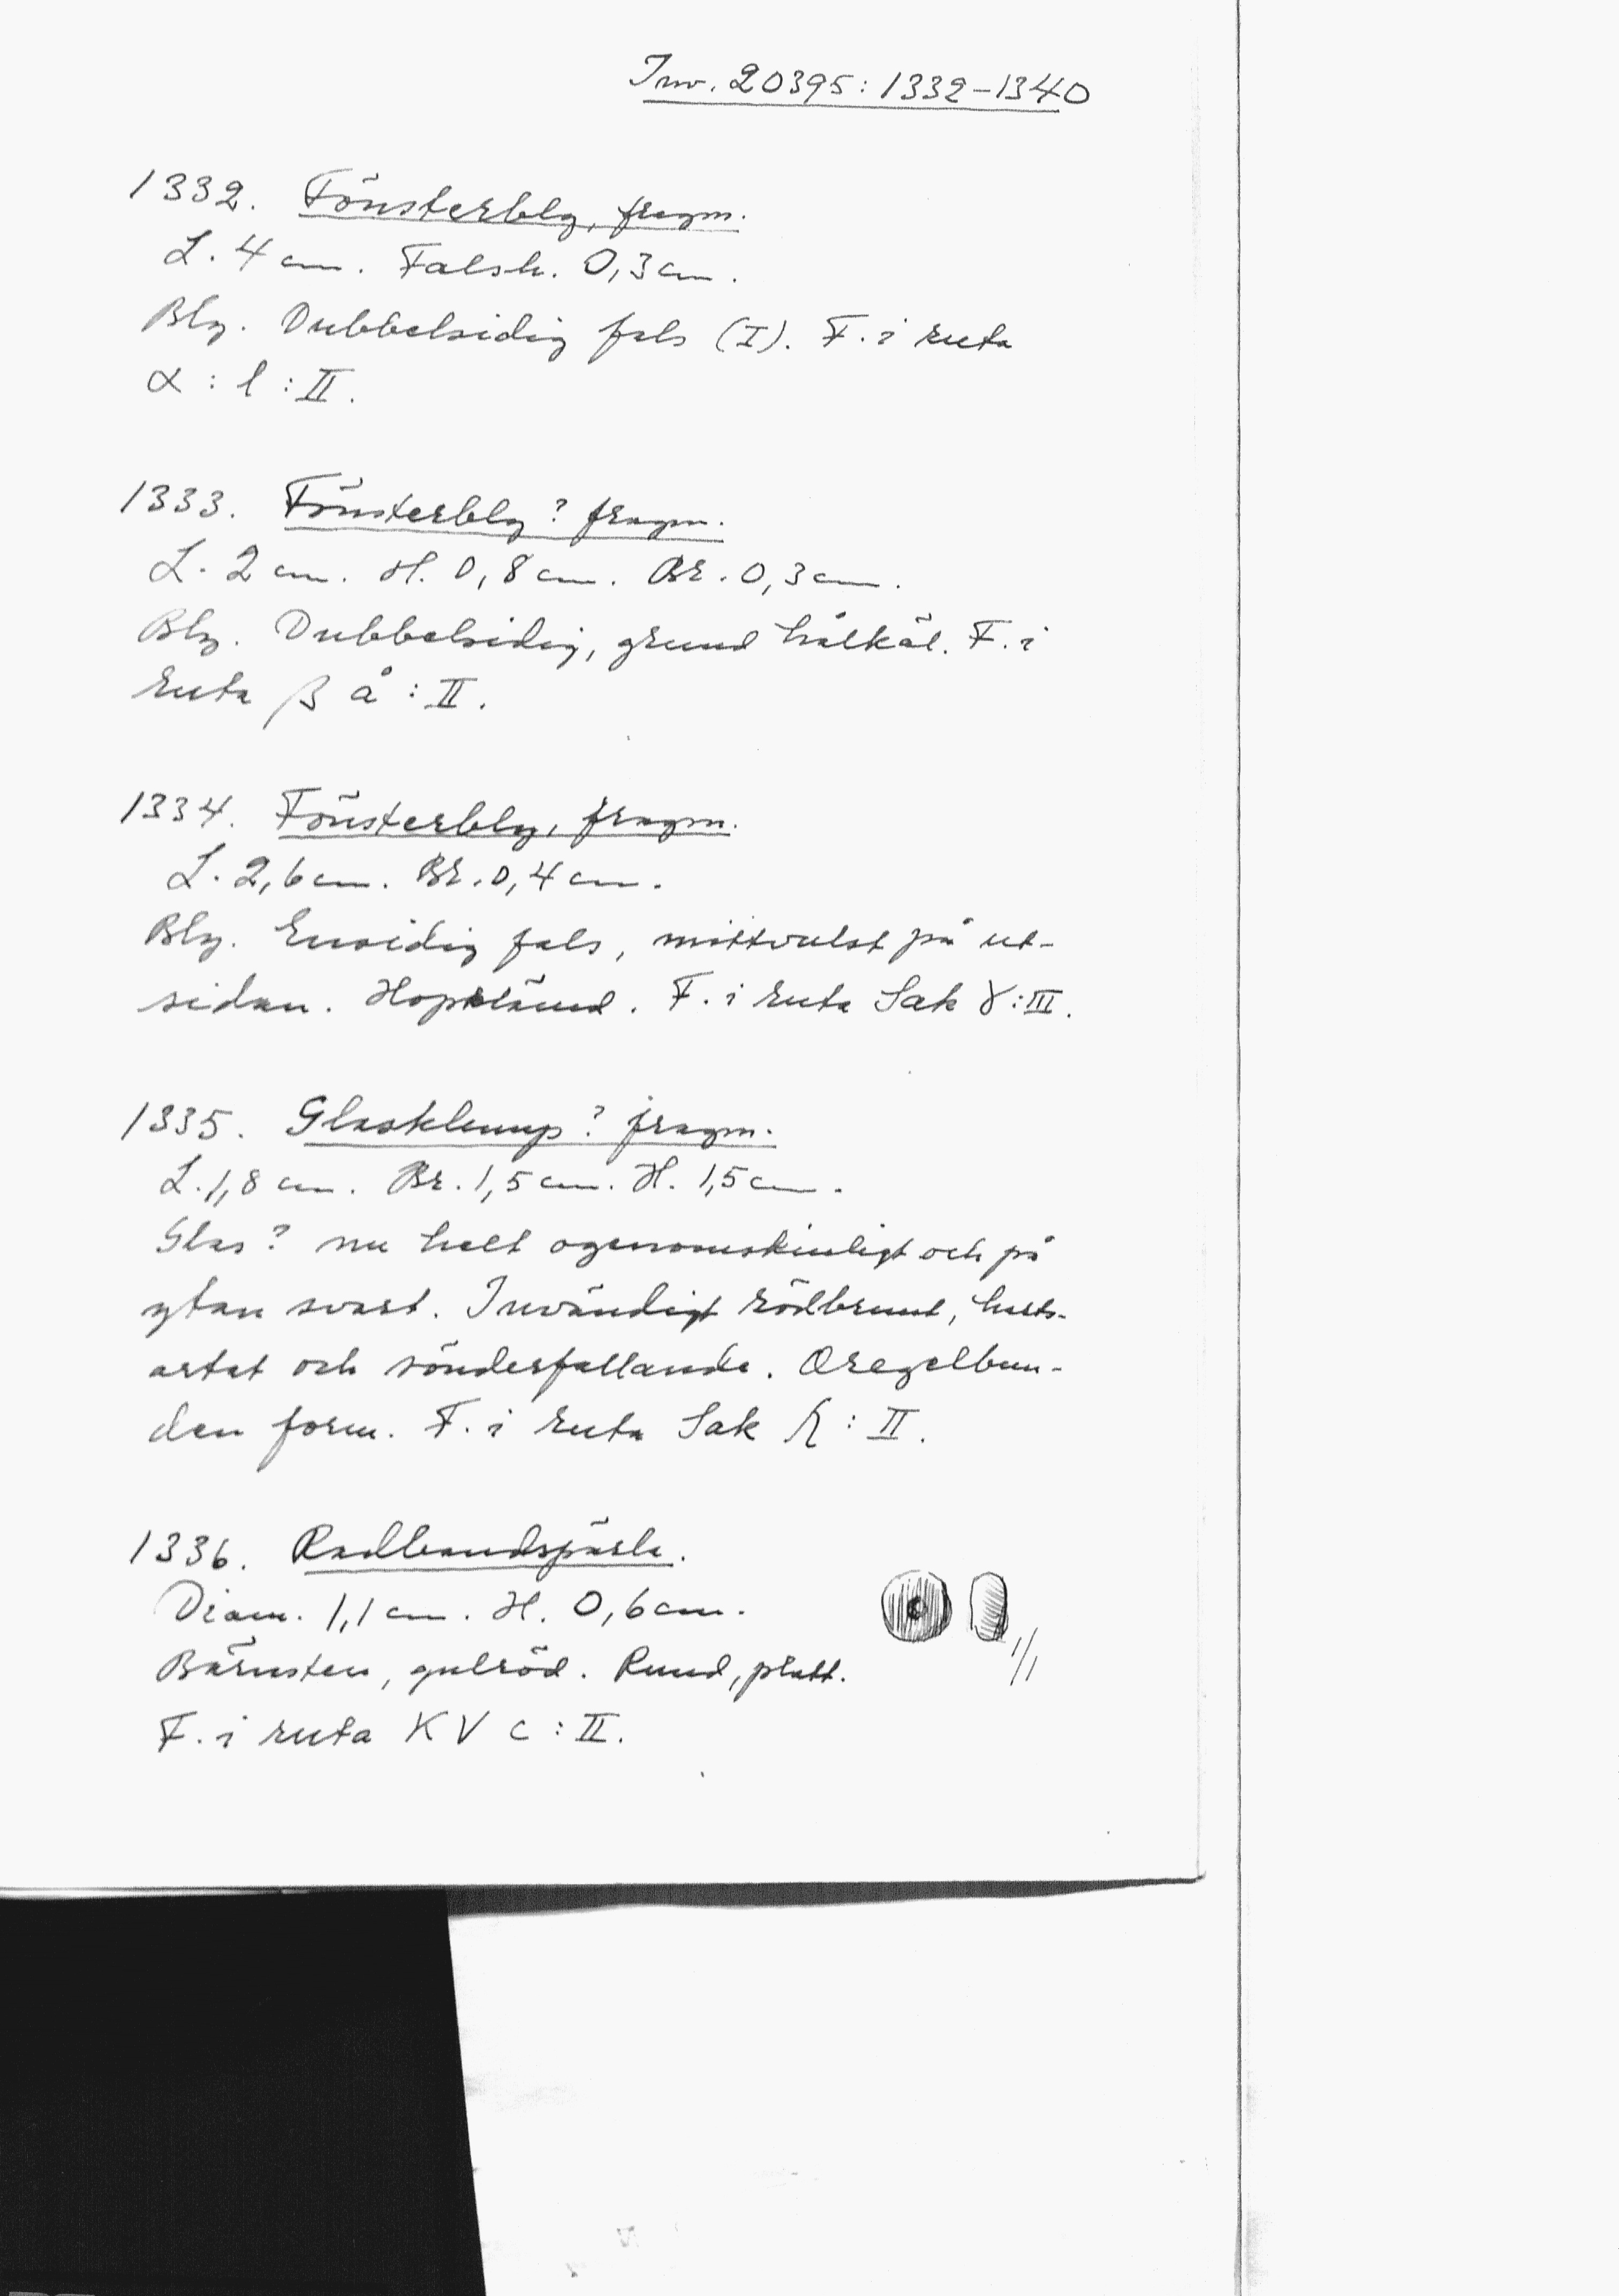 Inv. 20395: 1332-1340
1332. Fönsterbly, fragm.
L. 4 cm. Falsh. 0,3 cm.
Bly. Dubbelsidig fals (I). F. i ruta
α : l : II.
1333. Fönsterbly? fragm.
L. 2 cm. H. 0,8 cm. Br. 0,3 cm.
Bly. Dubbelsidig, grund hålkäl. F. i
ruta β å : II.
1334. Fönsterbly, fragm.
L. 2,6 cm. Br. 0,4 cm.
Bly. Ensidig fals, mittvulst på ut-
sidan. Hopklämd. F. i ruta Sak γ : III.
1335. Glasklump? fragm.
L. 1,8 cm. Br. 1,5 cm. H. 1,5 cm.
Glas? nu helt ogenomskinligt och på
ytan svart. Invändigt rödbrunt, harts-
artat och sönderfallande. Oregelbun-
den form. F. i ruta Sak : II.
1336. Radbandspärla.
Diam. 1,1 cm. H. 0,6 cm.
Bärnsten, gulröd. Rund, platt.
1/1
F. i ruta K V c : II.